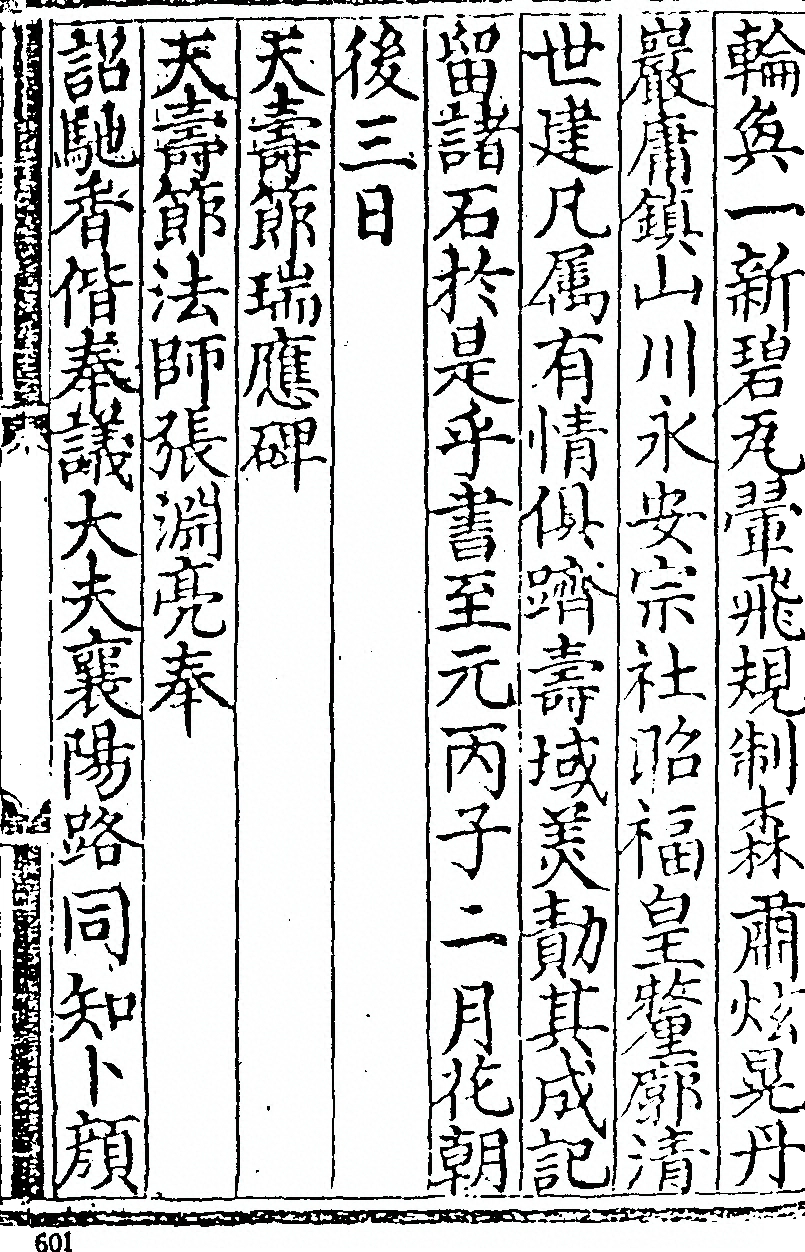 輪奐一新碧瓦翬飛規制森肅炫晃丹
巖庸鎮山川永安宗社昭福皇釐廓清
世建凡属有情俱躋壽域美勣其成記
留諸石於是乎書至元丙子二月花朝
後三日
天壽節瑞應碑
天壽節法師張淵亮奉
詔馳香偕奉議大夫襄陽路同知卜顔
601